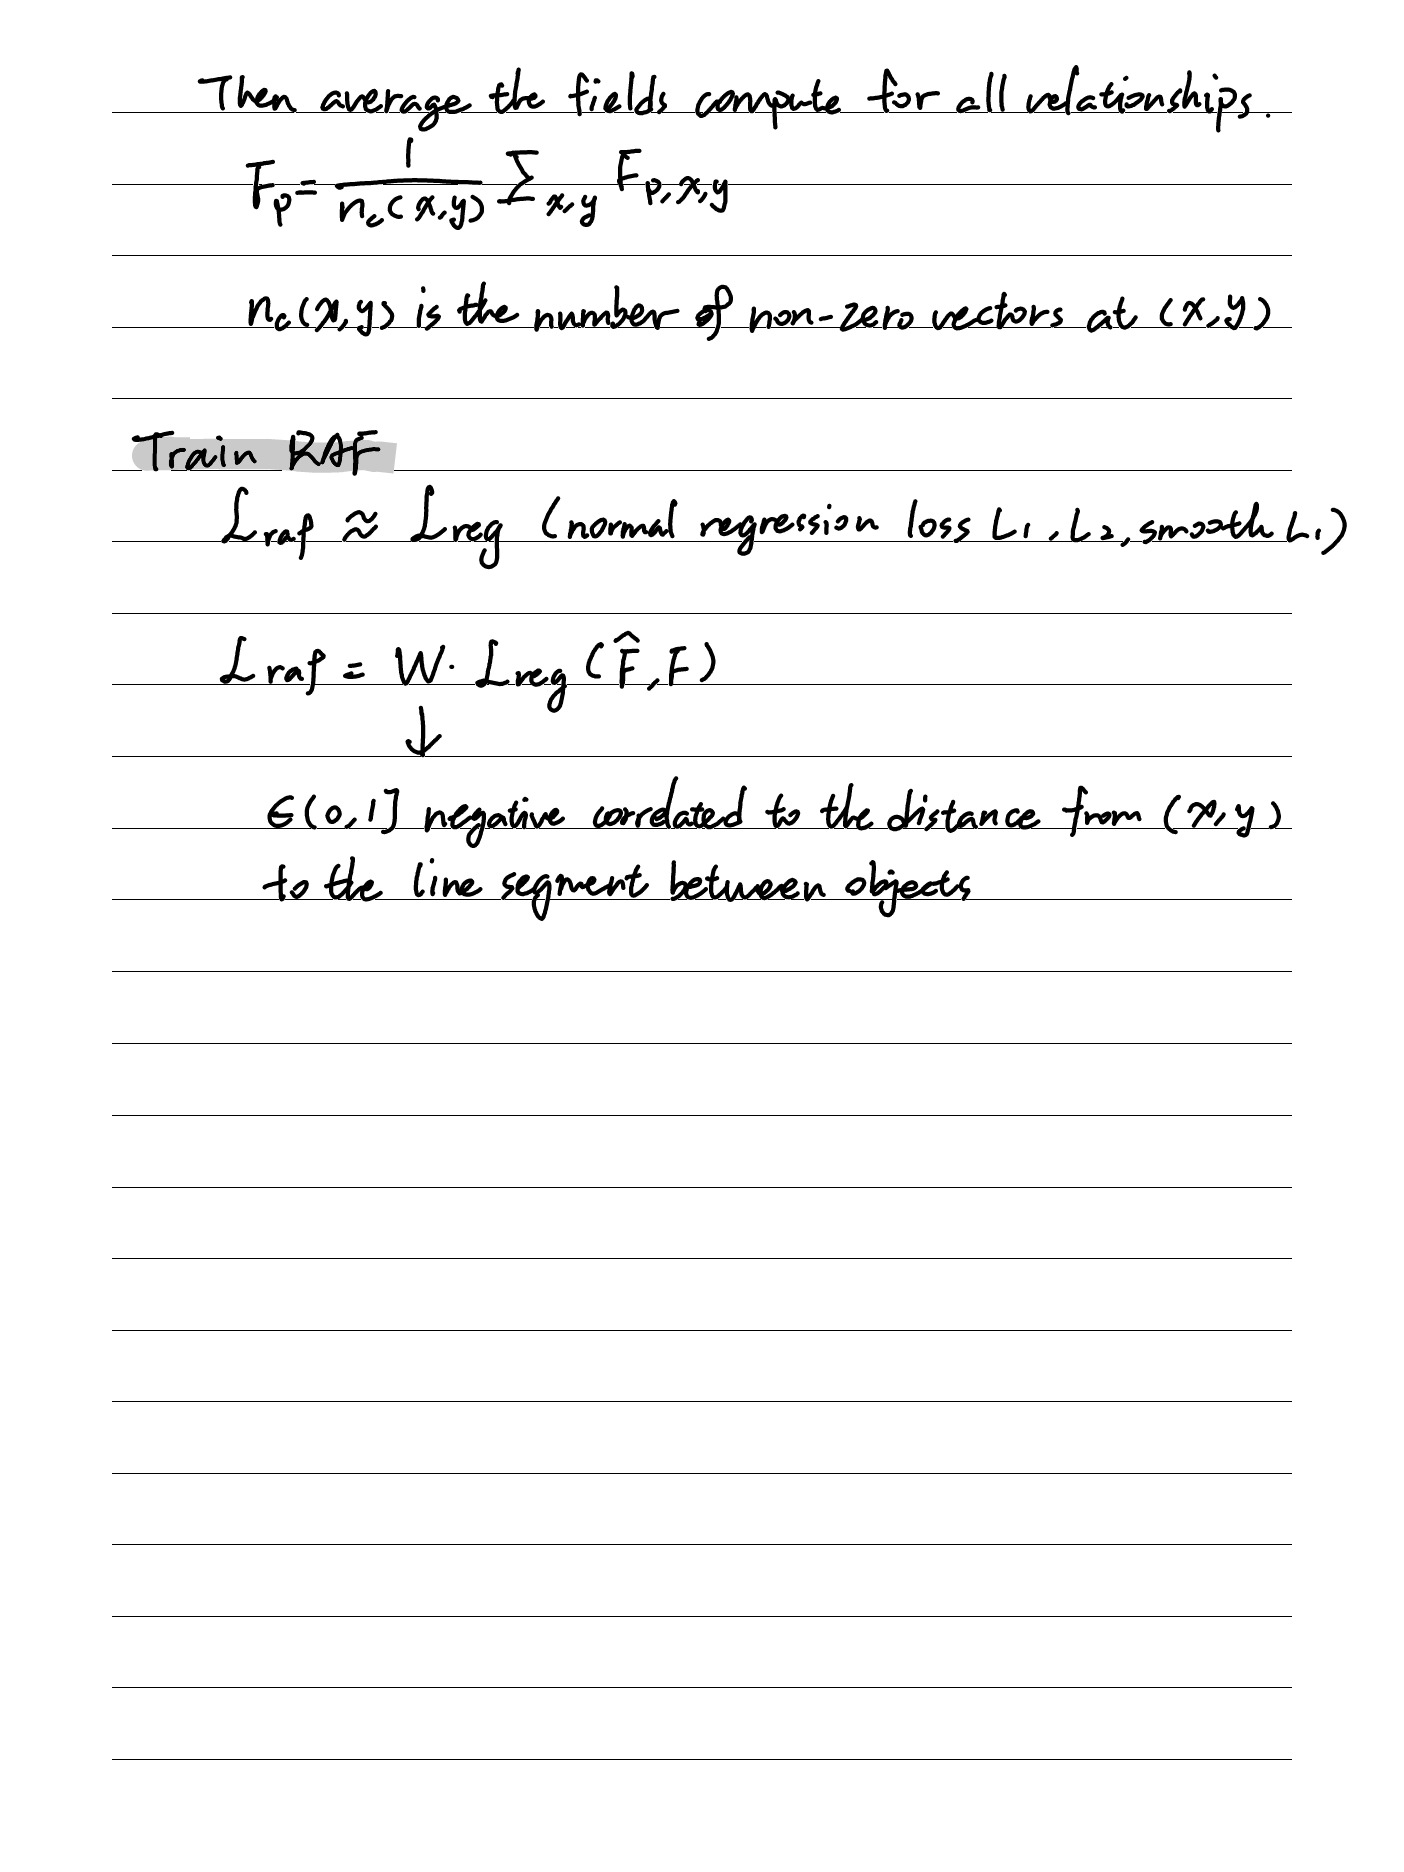 Then average the fields compute for all relationships.
F_p = \frac{1}{n_c(x,y)} \sum_{x,y} F_{p,x,y}
n_c(x,y) is the number of non-zero vectors at (x,y)
Train RAF
L_raf ≈ L_reg (normal regression loss L1, L2, smooth L1)
L_raf = W · L_reg (F̂, F)
↓
∈(0,1] negative correlated to the distance from (x,y)
to the line segment between objects